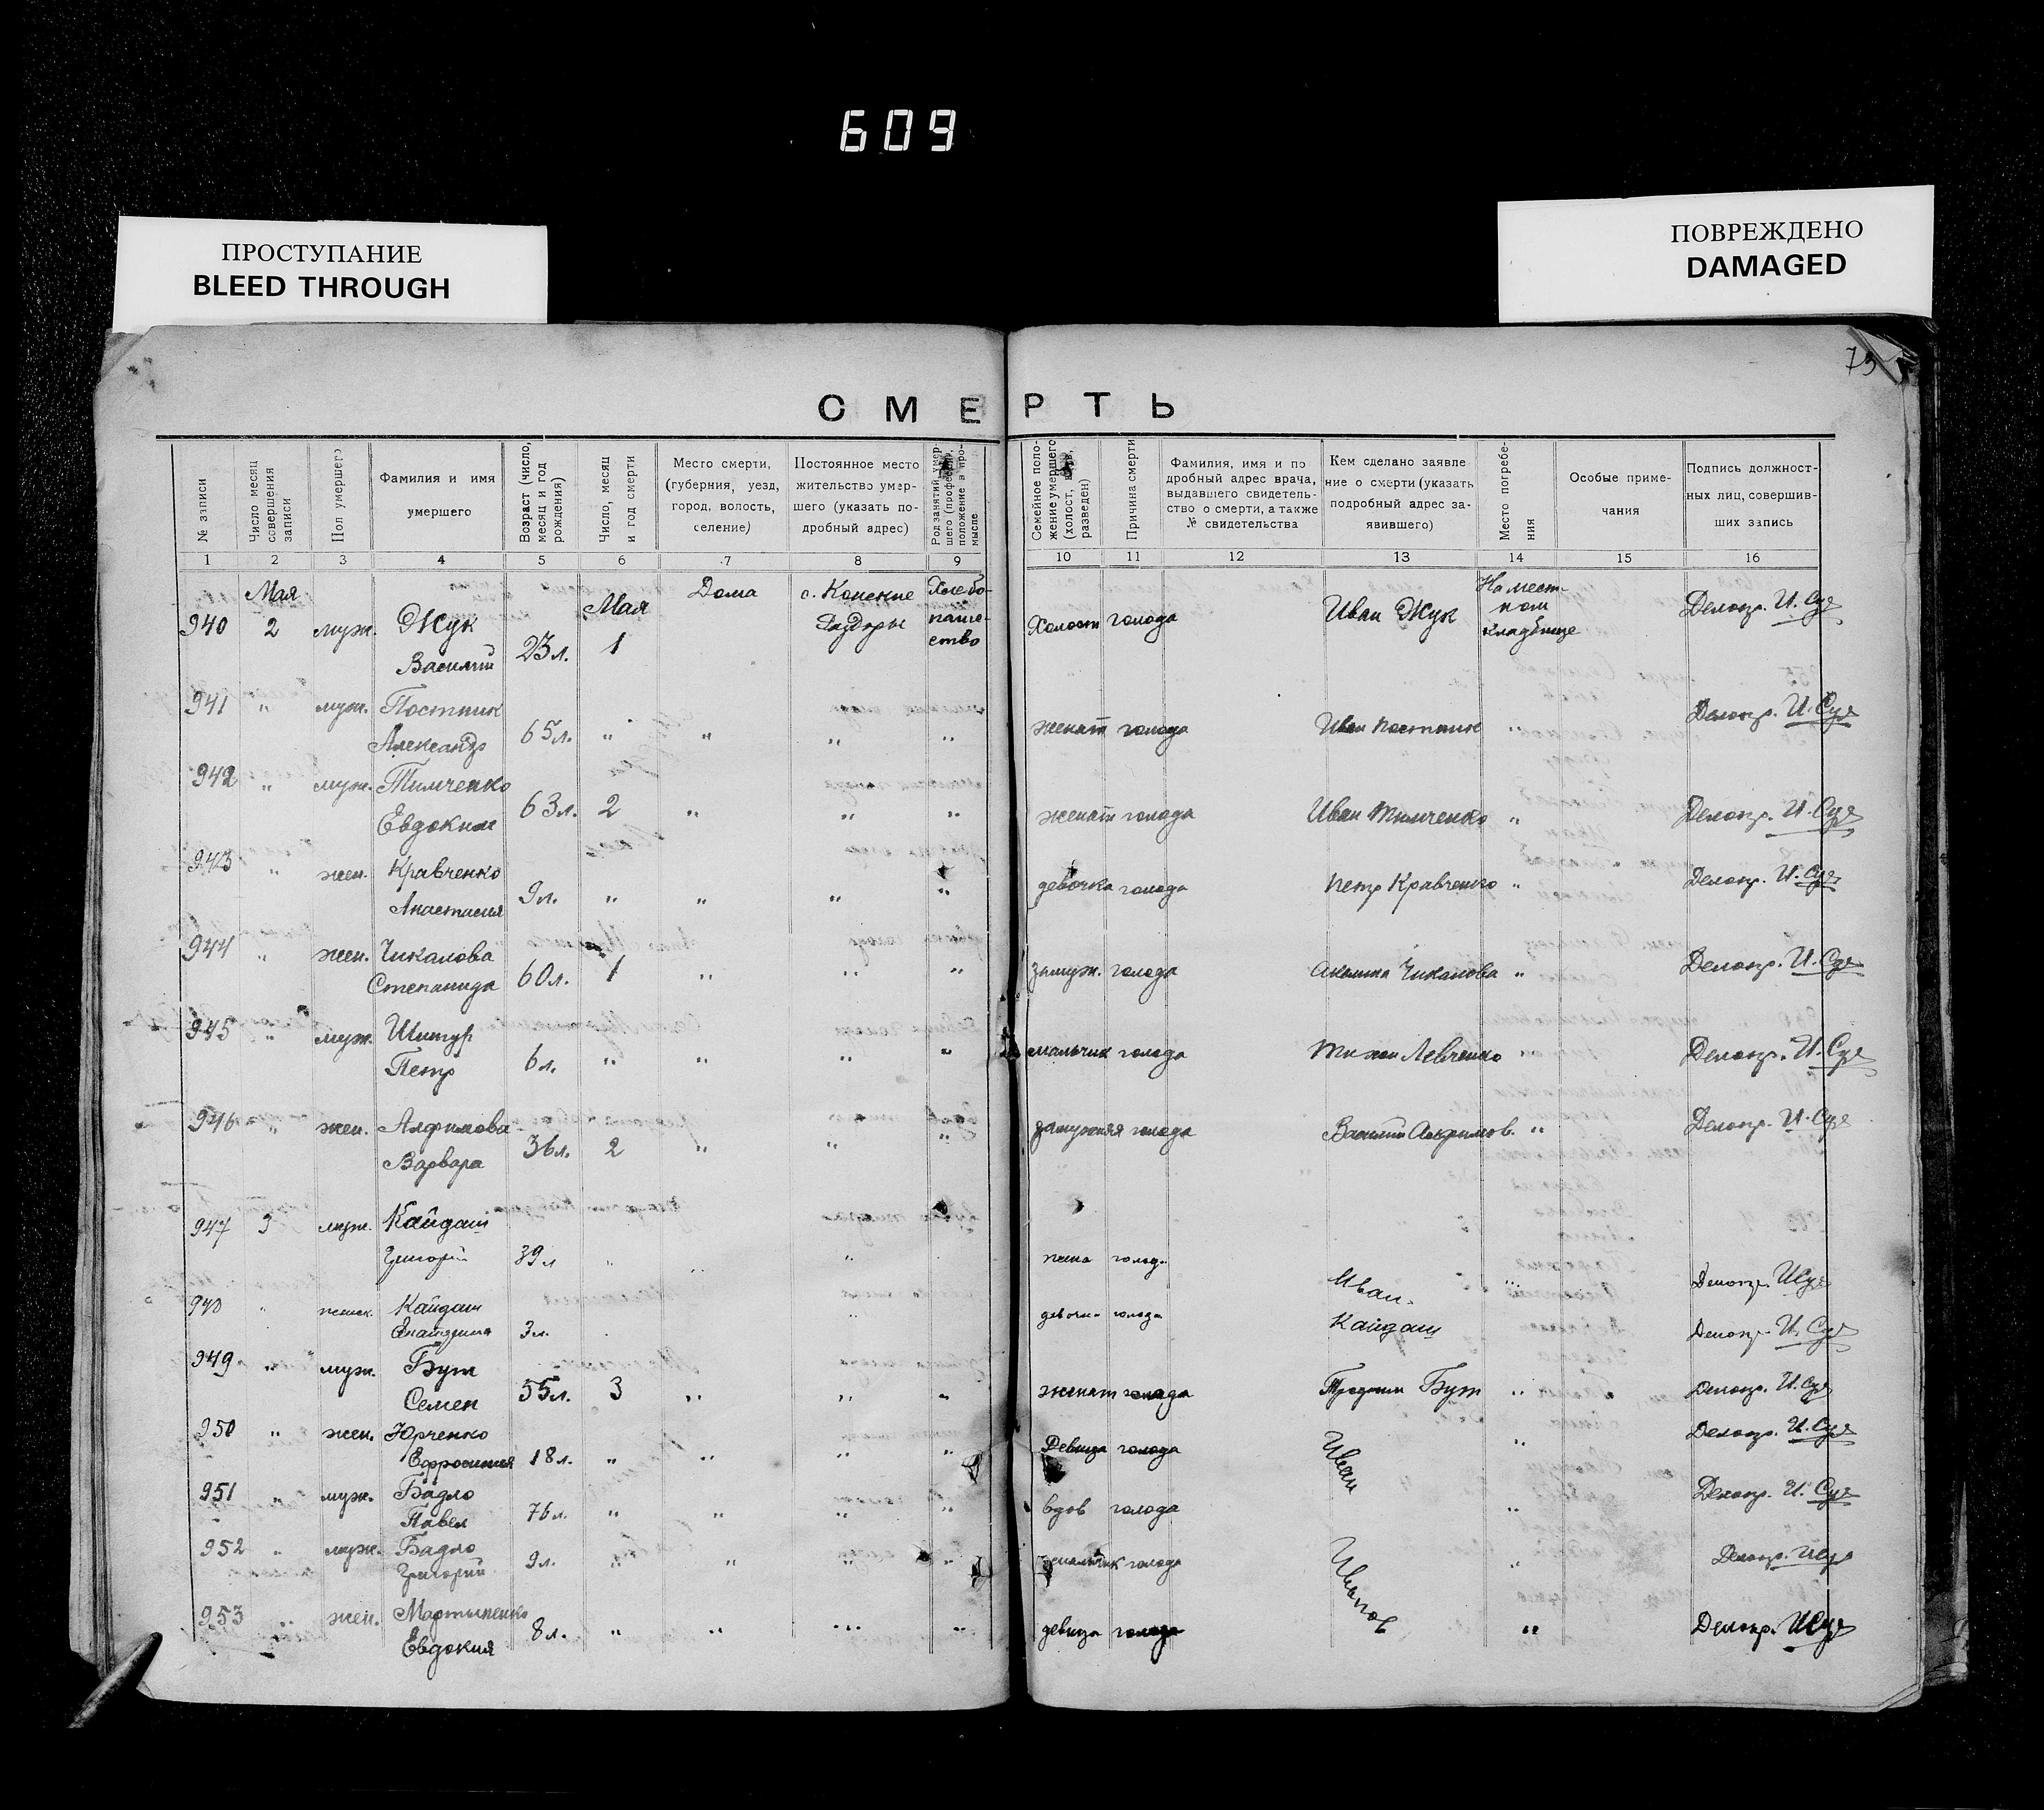 609
ПРОСТУПАНИЕ
BLEED THROUGH
ПОВРЕЖДЕНО
DAMAGED
СМЕРТЬ
№ записи
Число месяц совершения записи
Пол умершего
Фамилия и имя
умершего
Возраст (число, месяц и год рождения)
Число, месяц и год смерти
Место смерти,
(губерния, уезд,
город, волость,
селение)
Постоянное место
жительство умер-
шего (указать по-
дробный адрес)
Род занятий умер-
шего (профессия,
положение в про-
мысле
Семейное поло-
жение умершего
(холост,
разведен)
Причина смерти
Фамилия, имя и по
дробный адрес врача,
выдавшего свидетель-
ство о смерти, а также
№ свидетельства
Кем сделано заявле
ние о смерти (указать
подробный адрес за-
явившего)
Место погребе-
ния
Особые приме-
чания
Подпись должност-
ных лиц, совершив-
ших запись
1 2 3 4 5 6 7 8 9 10 11 12 13 14 15 16
Мая Мая Дома с. Хлебо- На мест-
940 2 муж. Жук паше- Холост голода Иван Жук ном Делопр. И. Суд
Василий 23 л. 1 ство кладбище
941 " муж. Постник Делопр. И. Суд
Александр 65 л. " " " " женат голода Иван Постник "
942 " муж. Тимченко
Евдоким 63 л. 2 " " " женат голода Иван Тимченко " Делопр. И. Суд
943 " жен. Кравченко девочка голода Петр Кравченко " Делопр. И. Суд
Анастасия 9 л. " " " "
944 " жен. Чикалова
Степанида 60 л. 1 " " " замуж. голода Чикалова " Делопр. И. Суд
945 " муж. Шитур
Петр 6 л. " " " " мальчик голода Тихон Левченко " Делопр. И. Суд
946 " жен. Алфимова замужняя голода Василий Алфимов. " Делопр. И. Суд
Варвара 36 л. 2 " " "
947 3 муж. Кайдаш
Григорий 39 л " голод. Иван Делопр. И Суд
948 " Кайдаш голода
3 л. Кайдаш Делопр. И. Суд
949 " муж. Бут
Семен 55 л. 3 " " " женат голода Бут " Делопр. И. Суд
950 " жен. Юрченко Делопр. И. Суд
Ефросиния 18 л. " " " " Девица голода Иван "
951 " муж. Бадло Делопр. И. Суд
Павел 76 л. " " " " вдов голода "
952 " муж. Бадло
Григорий 9 л. " " " " мальчик голода Иванов " Делопр. И Суд
953 " жен. Мартыненко
Евдокия 8 л. " " " " девица голода " Делопр. И Суд